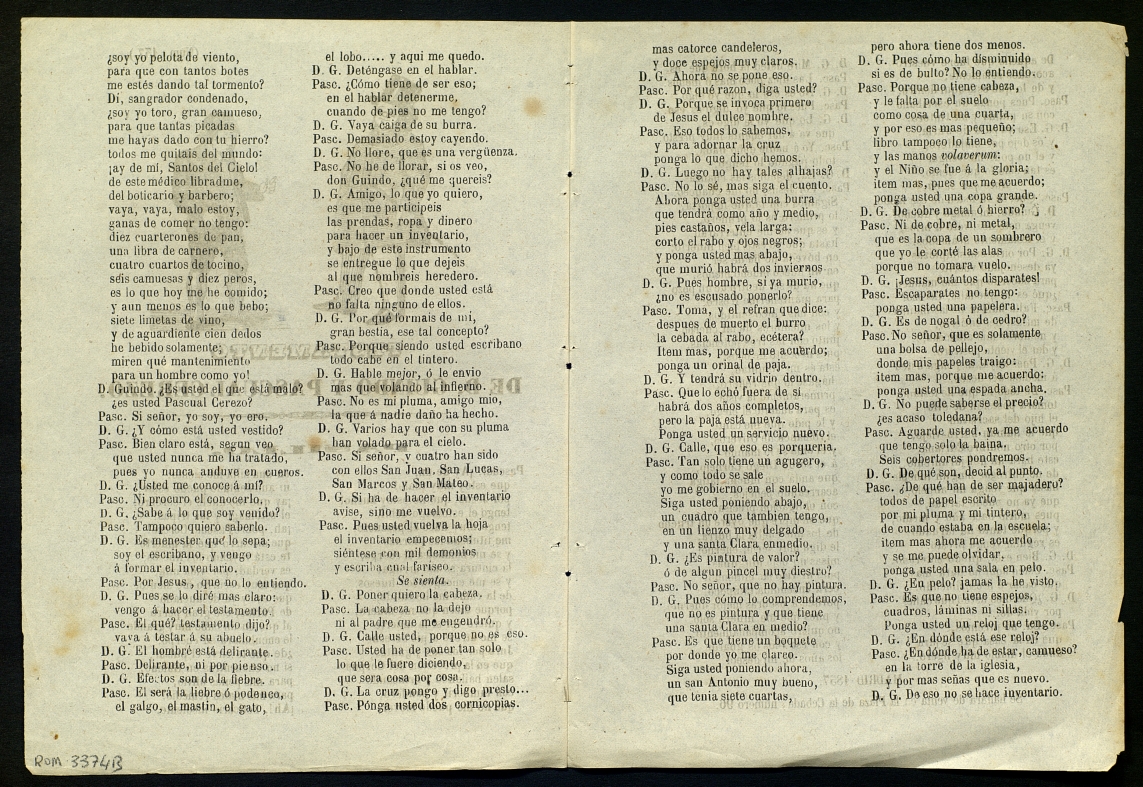 ¿soy yo pelota de viento,
para que con tantos botes
me estés dando tal tormento?
Dí, sangrador condenado,
¿soy yo toro, gran camueso,
para que tantas picadas
me hayas dado con tu hierro?
todos me quitais del mundo:
¡ay de mí, Santos del Cielo!
de este médico libradme,
del boticario y barbero;
vaya, vaya, malo estoy,
ganas de comer no tengo:
diez cuarterones de pan,
una libra de carnero,
cuatro cuartos de tocino,
séis camuesas y diez peros,
es lo que hoy me he comido;
y aun menos es lo que bebo;
siete limetas de vino,
y de aguardiente cien dedos
he bebido solamente;
miren qué mantenimiento
para un hombre como yo!
D. Guindo. ¿Es usted el que está malo?
¿es usted Pascual Cerezo?
Pasc. Si señor, yo soy, yo ero.
D. G. ¿Y cómo está usted vestido?
Pasc. Bien claro está, segun veo
que usted nunca me ha tratado,
pues yo nunca anduve en cueros.
D. G. ¿Usted me conoce á mí?
Pasc. Ni procuro el conocerlo.
D. G. ¿Sabe á lo que soy venido?
Pasc. Tampoco quiero saberlo.
D. G. Es menester que lo sepa;
soy el escribano, y vengo
á formar el inventario.
Pasc. Por Jesus, que no lo entiendo.
D. G. Pues se lo diré mas claro:
vengo á hacer el testamento.
Pasc. El qué? testamento dijo?
vaya á testar á su abuelo.
D. G. El hombre está delirante.
Pasc. Delirante, ni por pienso.
D. G. Efectos son de la fiebre.
Pasc. El será la liebre ó podenco,
el galgo, el mastin, el gato,
el lobo..... y aqui me quedo.
D. G. Deténgase en el hablar.
Pasc. ¿Cómo tiene de ser eso;
en el hablar detenerme,
cuando de pies no me tengo?
D. G. Vaya caiga de su burra.
Pasc. Demasiado estoy cayendo.
D. G. No llore, que es una vergüenza.
Pasc. No he de llorar, si os veo,
don Guindo, ¿qué me quereis?
D. G. Amigo, lo que yo quiero,
es que me participeis
las prendas, ropa y dinero
para hacer un inventario,
y bajo de este instrumento
se entregue lo que dejeis
al que nombreis heredero.
Pasc. Creo que donde usted está
no falta ninguno de ellos.
D. G. Por qué formais de mi,
gran bestia, ese tal concepto?
Pasc. Porque siendo usted escribano
todo cabe en el tintero.
D. G. Hable mejor, ó le envio
mas que volando al infierno.
Pasc. No es mi pluma, amigo mio,
la que á nadie daño ha hecho.
D. G. Varios hay que con su pluma
han volado para el cielo.
Pasc. Si señor, y cuatro han sido
con ellos San Juan, San Lucas,
San Marcos y San Mateo.
D. G. Si ha de hacer el inventario
avise, sino me vuelvo.
Pasc. Pues usted vuelva la hoja
el inventario empecemos;
siéntese con mil demonios
y escriba cual fariseo.
Se sienta.
D. G. Poner quiero la cabeza.
Pasc. La cabeza no la dejo
ni al padre que me engendró.
D. G. Calle usted, porque no es eso.
Pasc. Usted ha de poner tan solo
lo que le fuere diciendo,
que sera cosa por cosa.
D. G. La cruz pongo y digo presto...
Pasc. Pónga usted dos cornicopias.
mas catorce candeleros,
y doce espejos muy claros.
D. G. Ahora no se pone eso.
Pasc. Por qué razon, diga usted?
D. G. Porque se invoca primero
de Jesus el dulce nombre.
Pasc. Eso todos lo sabemos,
y para adornar la cruz
ponga lo que dicho hemos.
D. G. Luego no hay tales alhajas?
Pasc. No lo sé, mas siga el cuento.
Ahora ponga usted una burra
que tendrá como año y medio,
pies castaños, vela larga:
corto el rabo y ojos negros;
y ponga usted mas abajo,
que murió habrá dos inviernos
D. G. Pues hombre, si ya murio,
¿no es escusado ponerlo?
Pasc. Toma, y el refran que dice:
despues de muerto el burro
la cebada al rabo, ecétera?
Item mas, porque me acuerdo;
ponga un orinal de paja.
D. G. Y tendrá su vidrio dentro.
Pasc. Que lo echó fuera de si
habrá dos años completos,
pero la paja está nueva.
Ponga usted un servicio nuevo.
D. G. Calle, que eso es porqueria.
Pasc. Tan solo tiene un agugero,
y como todo se sale
yo me gobierno en el suelo.
Siga usted poniendo abajo,
un cuadro que tambien tengo,
en un lienzo muy delgado
y una santa Clara enmedio.
D. G. ¿Es pintura de valor?
ó de algun pincel muy diestro?
Pasc. No señor, que no hay pintura.
D. G. Pues cómo lo comprendemos,
que no es pintura y que tiene
una santa Clara en medio?
Pasc. Es que tiene un boquete
por donde yo me clareo.
Siga usted poniendo ahora,
un san Antonio muy bueno,
que tenia siete cuartas,
pero ahora tiene dos menos.
D. G. Pues cómo ha disminuido
si es de bulto? No lo entiendo.
Pasc. Porque no tiene cabeza,
y le falta por el suelo
como cosa de una cuarta,
y por eso es mas pequeño;
libro tampoco lo tiene,
y las manos volaverum:
y el Niño se fue á la gloria;
item mas, pues que me acuerdo;
ponga usted una copa grande.
D. G. De cobre metal ó hierro?
Pasc. Ni de cobre, ni metal,
que es la copa de un sombrero
que yo le corté las alas
porque no tomara vuelo.
D. G. ¡Jesus, cuántos disparates!
Pasc. Escaparates no tengo:
ponga usted una papelera.
D. G. Es de nogal ó de cedro?
Pasc. No señor, que es solamente
una bolsa de pellejo,
donde mis papeles traigo:
item mas, porque me acuerdo:
ponga usted una espada ancha.
D. G. No puede saberse el precio?
¿es acaso toledana?
Pasc. Aguarde usted, ya me acuerdo
que tengo solo la baina.
Seis cobertores pondremos.
D. G. De qué son, decid al punto.
Pasc. ¿De qué han de ser majadero?
todos de papel escrito
por mi pluma y mi tintero,
de cuando estaba en la escuela;
item mas ahora me acuerdo
y se me puede olvidar,
ponga usted una sala en pelo.
D. G. ¿En pelo? jamas la he visto.
Pasc. Es que no tiene espejos,
cuadros, láminas ni sillas.
Ponga usted un reloj que tengo.
D. G. ¿En dónde está ese reloj?
Pasc. ¿En dónde ha de estar, camueso?
en la torre de la iglesia,
y por mas señas que es nuevo.
D. G. De eso no se hace inventario.
ROM 3374B